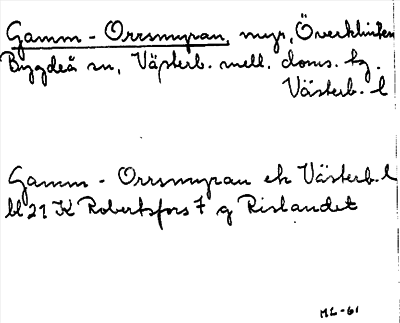 Gamm-Orrsmyran, myr, Överklinten
Bygdeå sn, Västerb. mell. doms. tg.
Västerb. l
Gamm-Orrsmyran ek Västerb. l
bl 21 K Robertsfors 7 g Rislandet
ML-61